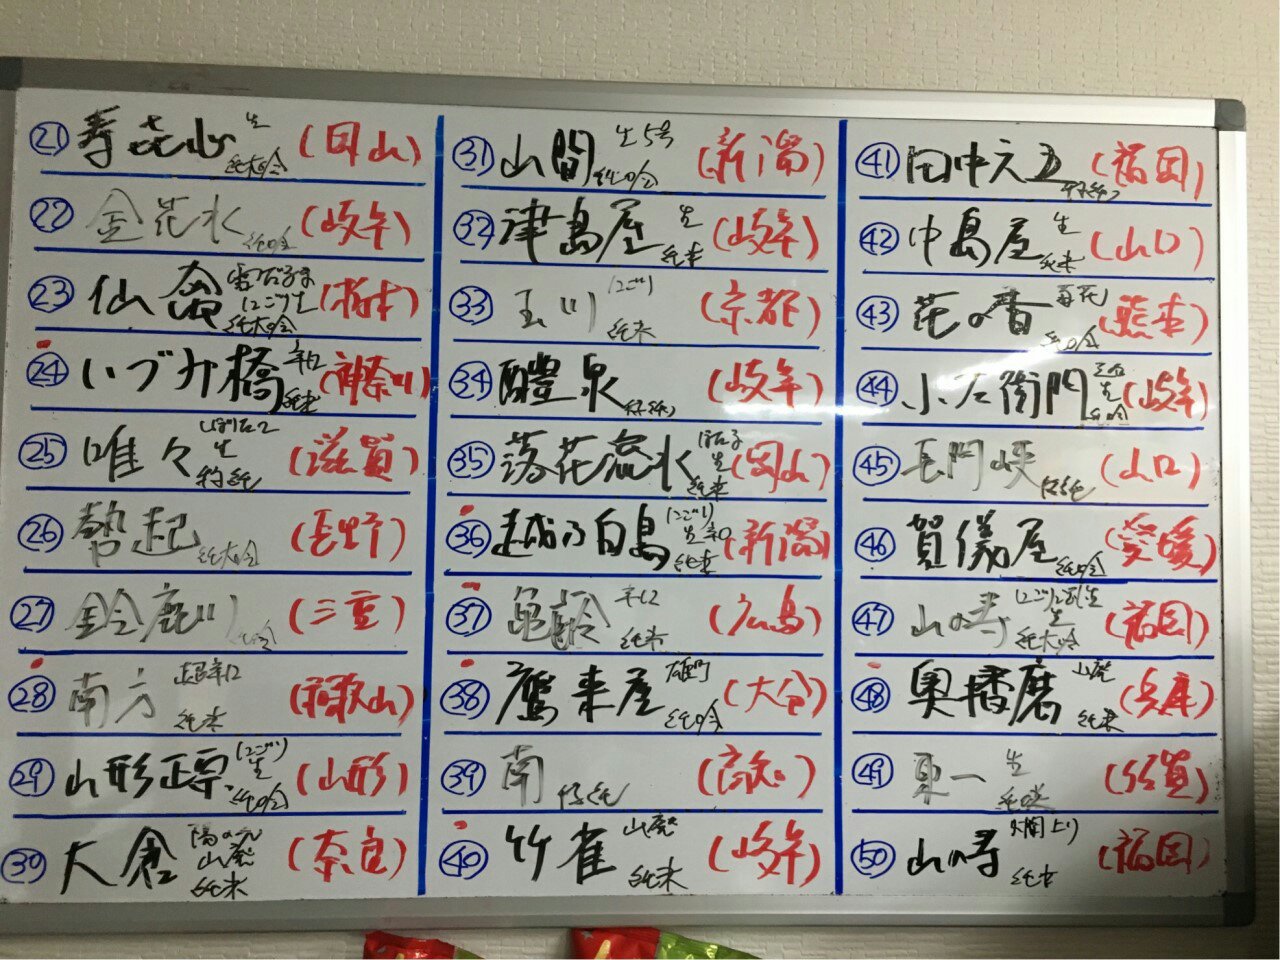 ㉑ 寿喜心 生 純大吟 (岡山)
㉒ 金花水 純吟 (岐阜)
㉓ 仙禽 雪だるま にごり生 純大吟 (栃木)
㉔ いづみ橋 辛口 純米 (神奈川)
㉕ 唯々 しぼりたて 生 特純 (滋賀)
㉖ 勢起 純大吟 (長野)
㉗ 鈴鹿川 純吟 (三重)
㉘ 南方 超辛口 純米 (和歌山)
㉙ 山形正宗 (にごり) 生 純吟 (山形)
㉚ 大倉 陽の光 山廃 純米 (奈良)
㉛ 山間 生5号 純吟 (新潟)
㉜ 津島屋 生 純米 (岐阜)
㉝ 玉川 (にごり) 純米 (京都)
㉞ 醴泉 特純 (岐阜)
㉟ 落花流水 生 純米 (岡山)
㊱ 越乃白鳥 (にごり) 生 辛口 純米 (新潟)
㊲ 亀齢 辛口 純米 (広島)
㊳ 鷹来屋 雄町 純吟 (大分)
㊴ 南 特純 (高知)
㊵ 竹雀 山廃 純米 (岐阜)
㊶ 田中六五 特純 (福岡)
㊷ 中島屋 生 純米 (山口)
㊸ 花の香 純吟 (熊本)
㊹ 小左衛門 生 純吟 (岐阜)
㊺ 長門峡 特純 (山口)
㊻ 賀儀屋 純吟 (愛媛)
㊼ 山の寿 生 純大吟 (福岡)
㊽ 奥播磨 山廃 純米 (兵庫)
㊾ 東一 生 純吟 (佐賀)
㊿ 山の寿 純米 (福岡)